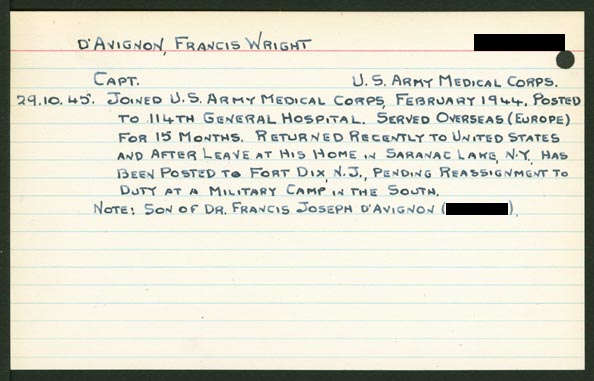 D'AVIGNON, FRANCIS WRIGHT
CAPT. U.S. ARMY MEDICAL CORPS.
29.10.45. JOINED U.S. ARMY MEDICAL CORPS, FEBRUARY 1944, POSTED
TO 114TH GENERAL HOSPITAL. SERVED OVERSEAS (EUROPE)
FOR 15 MONTHS. RETURNED RECENTLY TO UNITED STATES
AND AFTER LEAVE AT HIS HOME IN SARANAC LAKE, N.Y., HAS
BEEN POSTED TO FORT DIX, N.J., PENDING REASSIGNMENT TO
DUTY AT A MILITARY CAMP IN THE SOUTH.
NOTE: SON OF DR. FRANCIS JOSEPH D'AVIGNON ( ).